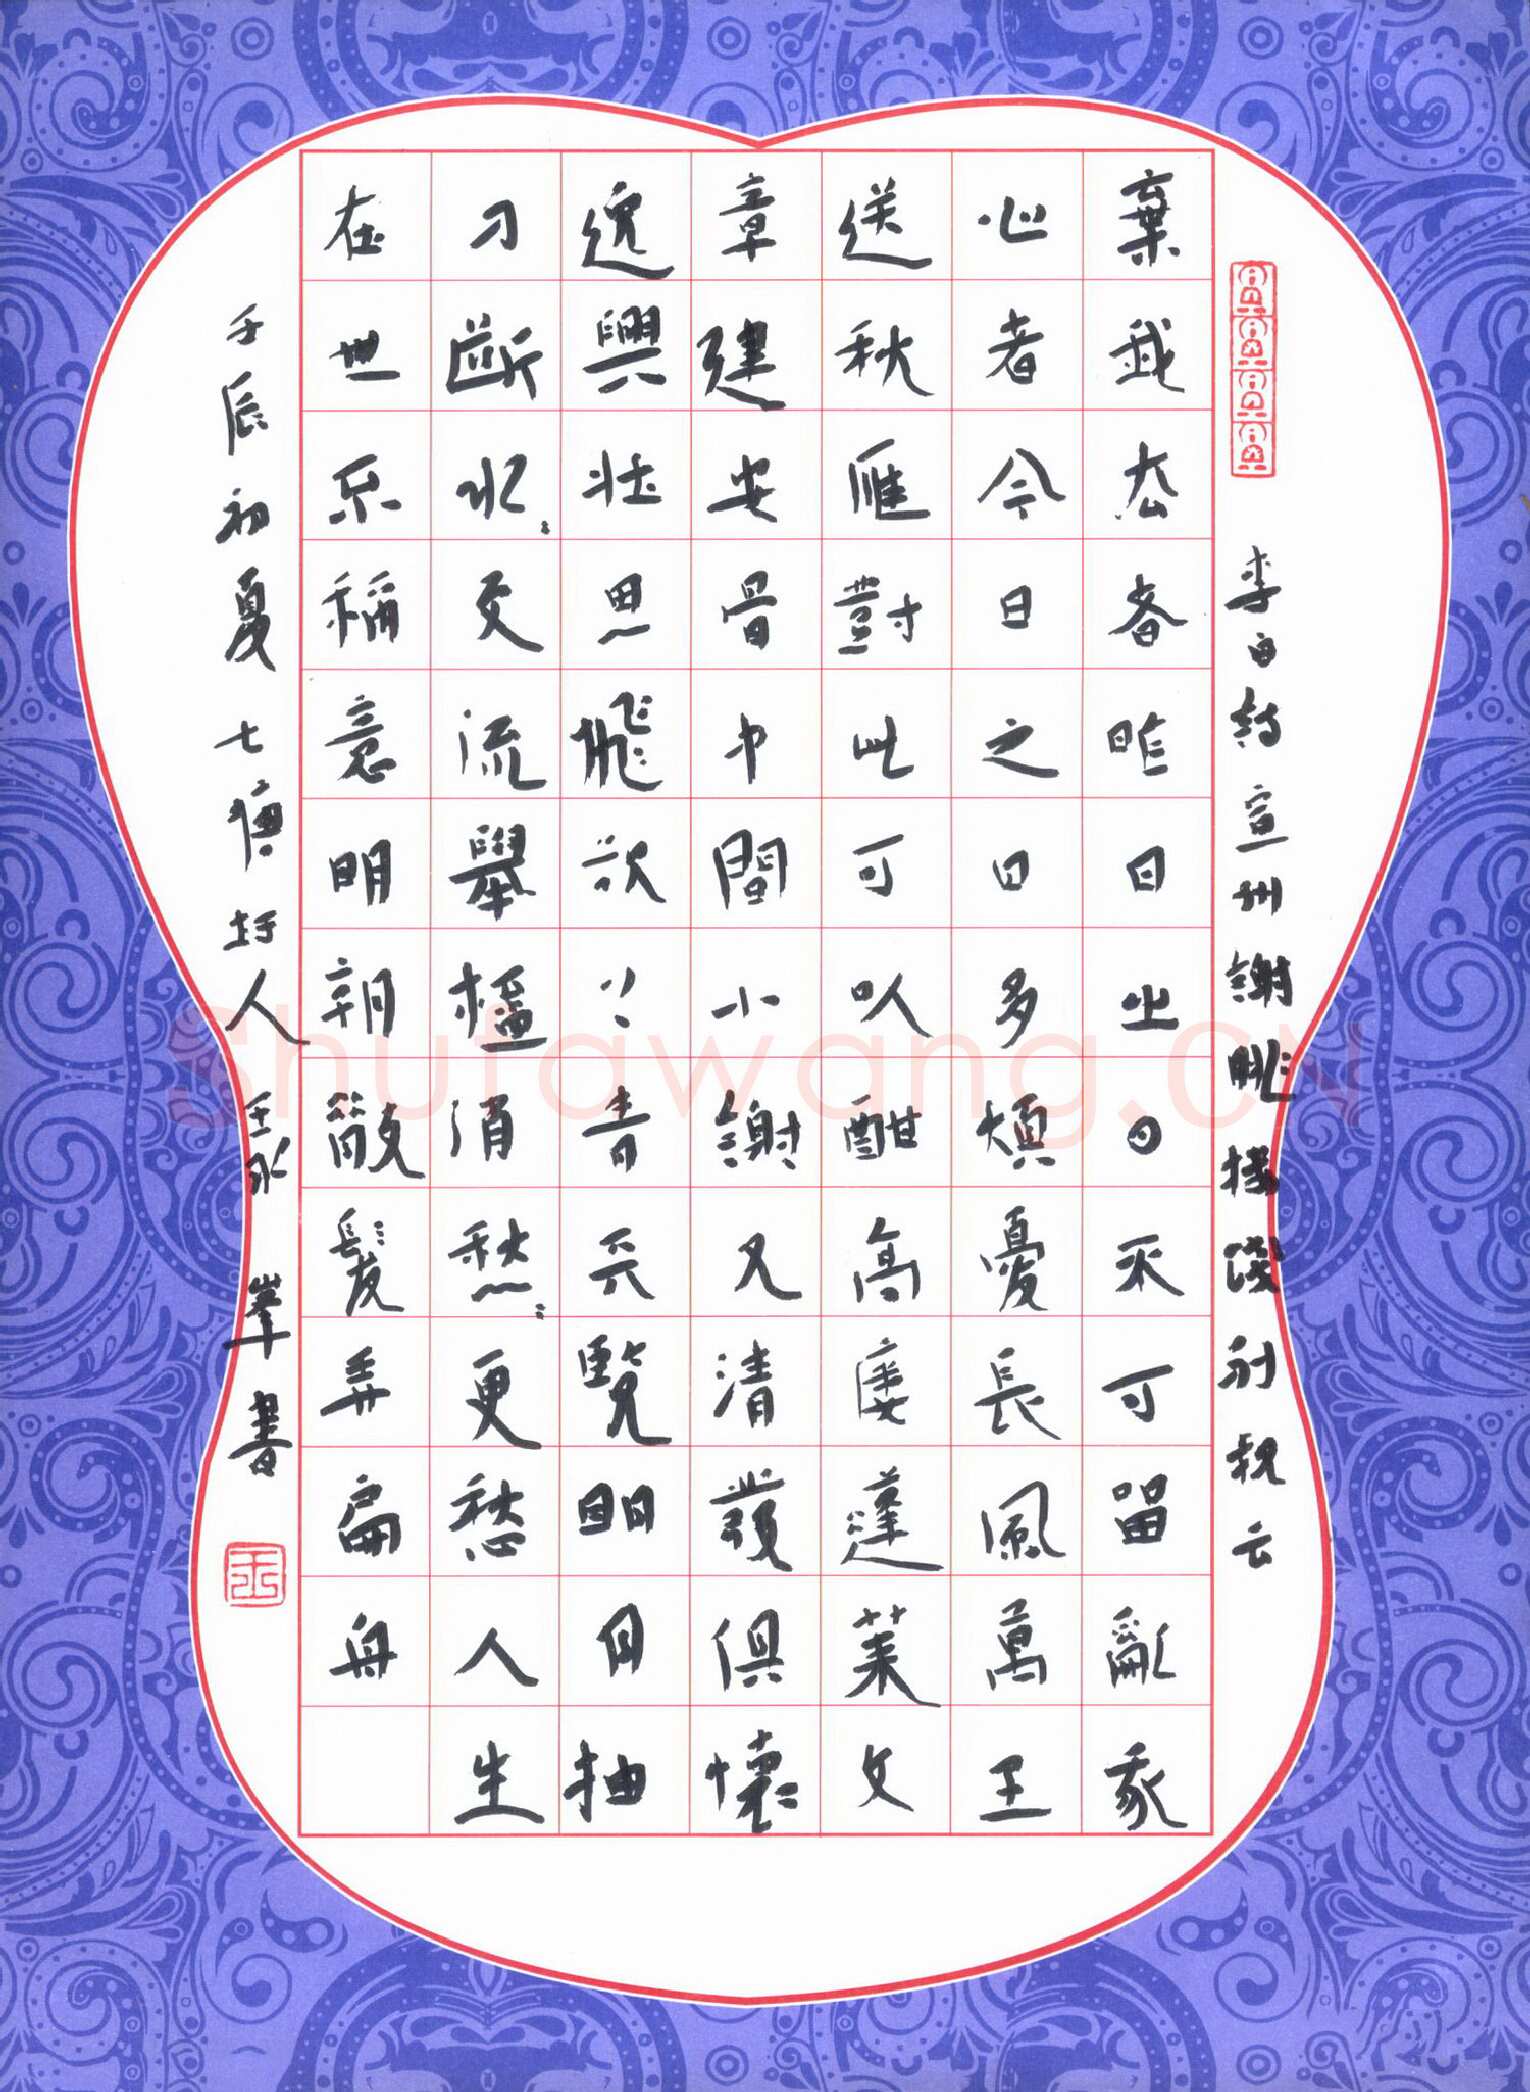 李白詩宣州謝朓樓餞別叔云
棄我去者昨日之日不可留亂我
心者今日之日多煩憂長風萬里
送秋雁對此可以酣高樓蓬萊文
章建安骨中間小謝又清發俱懷
逸興壯思飛欲上青天覽明月抽
刀斷水〻更流舉杯消愁〻更愁人生
在世不稱意明朝散髮弄扁舟
壬辰初夏七圩人王永峯書
Shufawang.CN